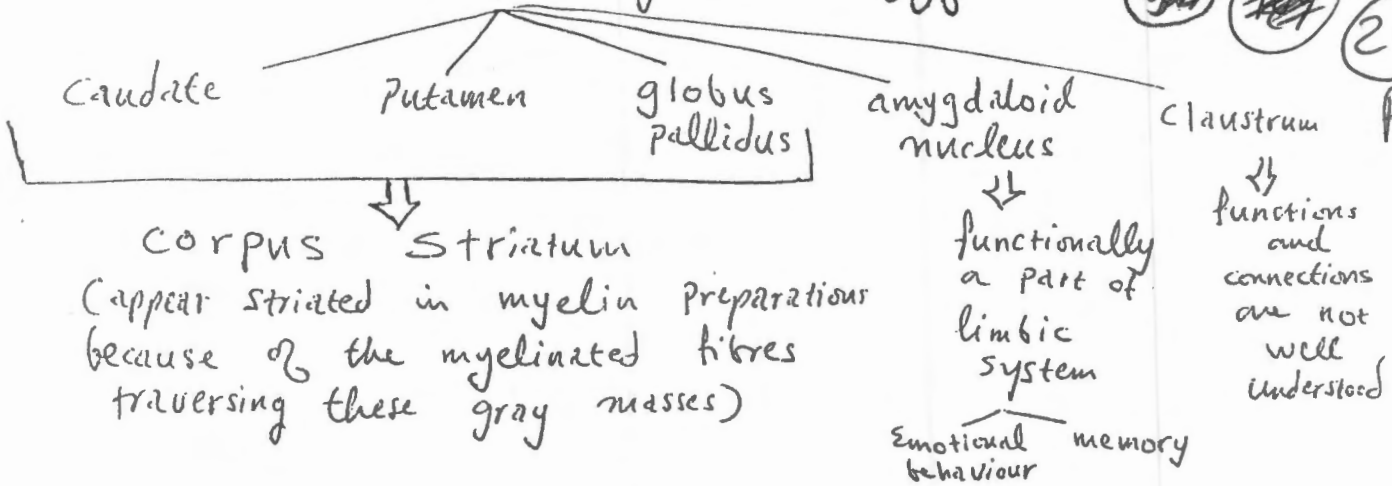 2
Caudate
Putamen
globus
pallidus
amygdaloid
nucleus
Claustrum
Corpus Striatum
(appear striated in myelin preparations
because of the myelinated fibres
traversing these gray masses)
functionally
a part of
limbic
system
Emotional
behaviour
memory
functions
and
connections
are not
well
understood